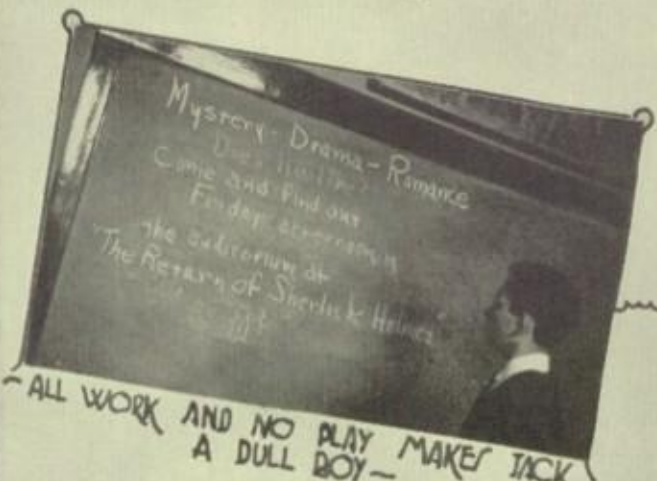 Mystery - Drama - Romance
Come and find out
Friday afternoon in
the auditorium at
"The Return of Sherlock Holmes"
~ ALL WORK AND NO PLAY MAKES JACK
A DULL BOY ~